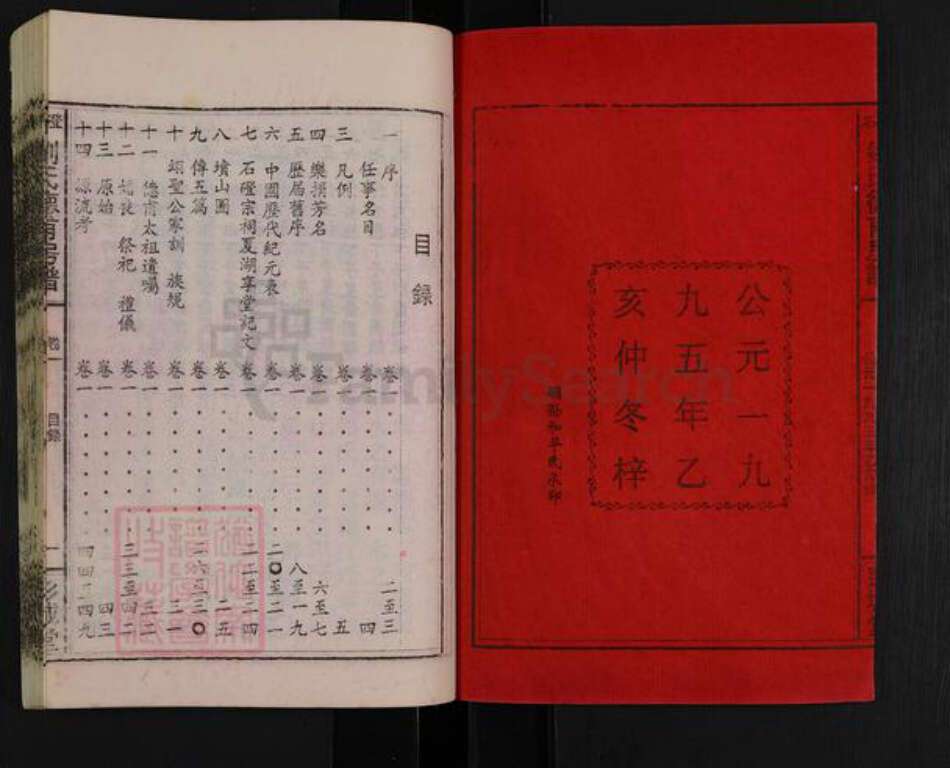 公元一九
九五年乙
亥仲冬梓
目錄
一 序 卷一 二至三
二 任事名目 卷一 四
三 凡例 卷一 五
四 樂捐芳名 卷一 六至七
五 歷屆舊序 卷一 八至一九
六 中國歷代紀元表 卷一 二〇至二一
七 石磴宗祠夏湖享堂記文 卷一 二二至二四
八 墳山圖 卷一 二五
九 傳五篇 卷一 二六至三〇
十 頌聖公家訓 族規 卷一 三一
十一 德甫太祖遺囑 卷一 三二
十二 祭祀 禮儀 卷一 三三至四二
十三 原始 卷一 四三
十四 源流考 卷一 四四 四九
目錄
FamilySearch